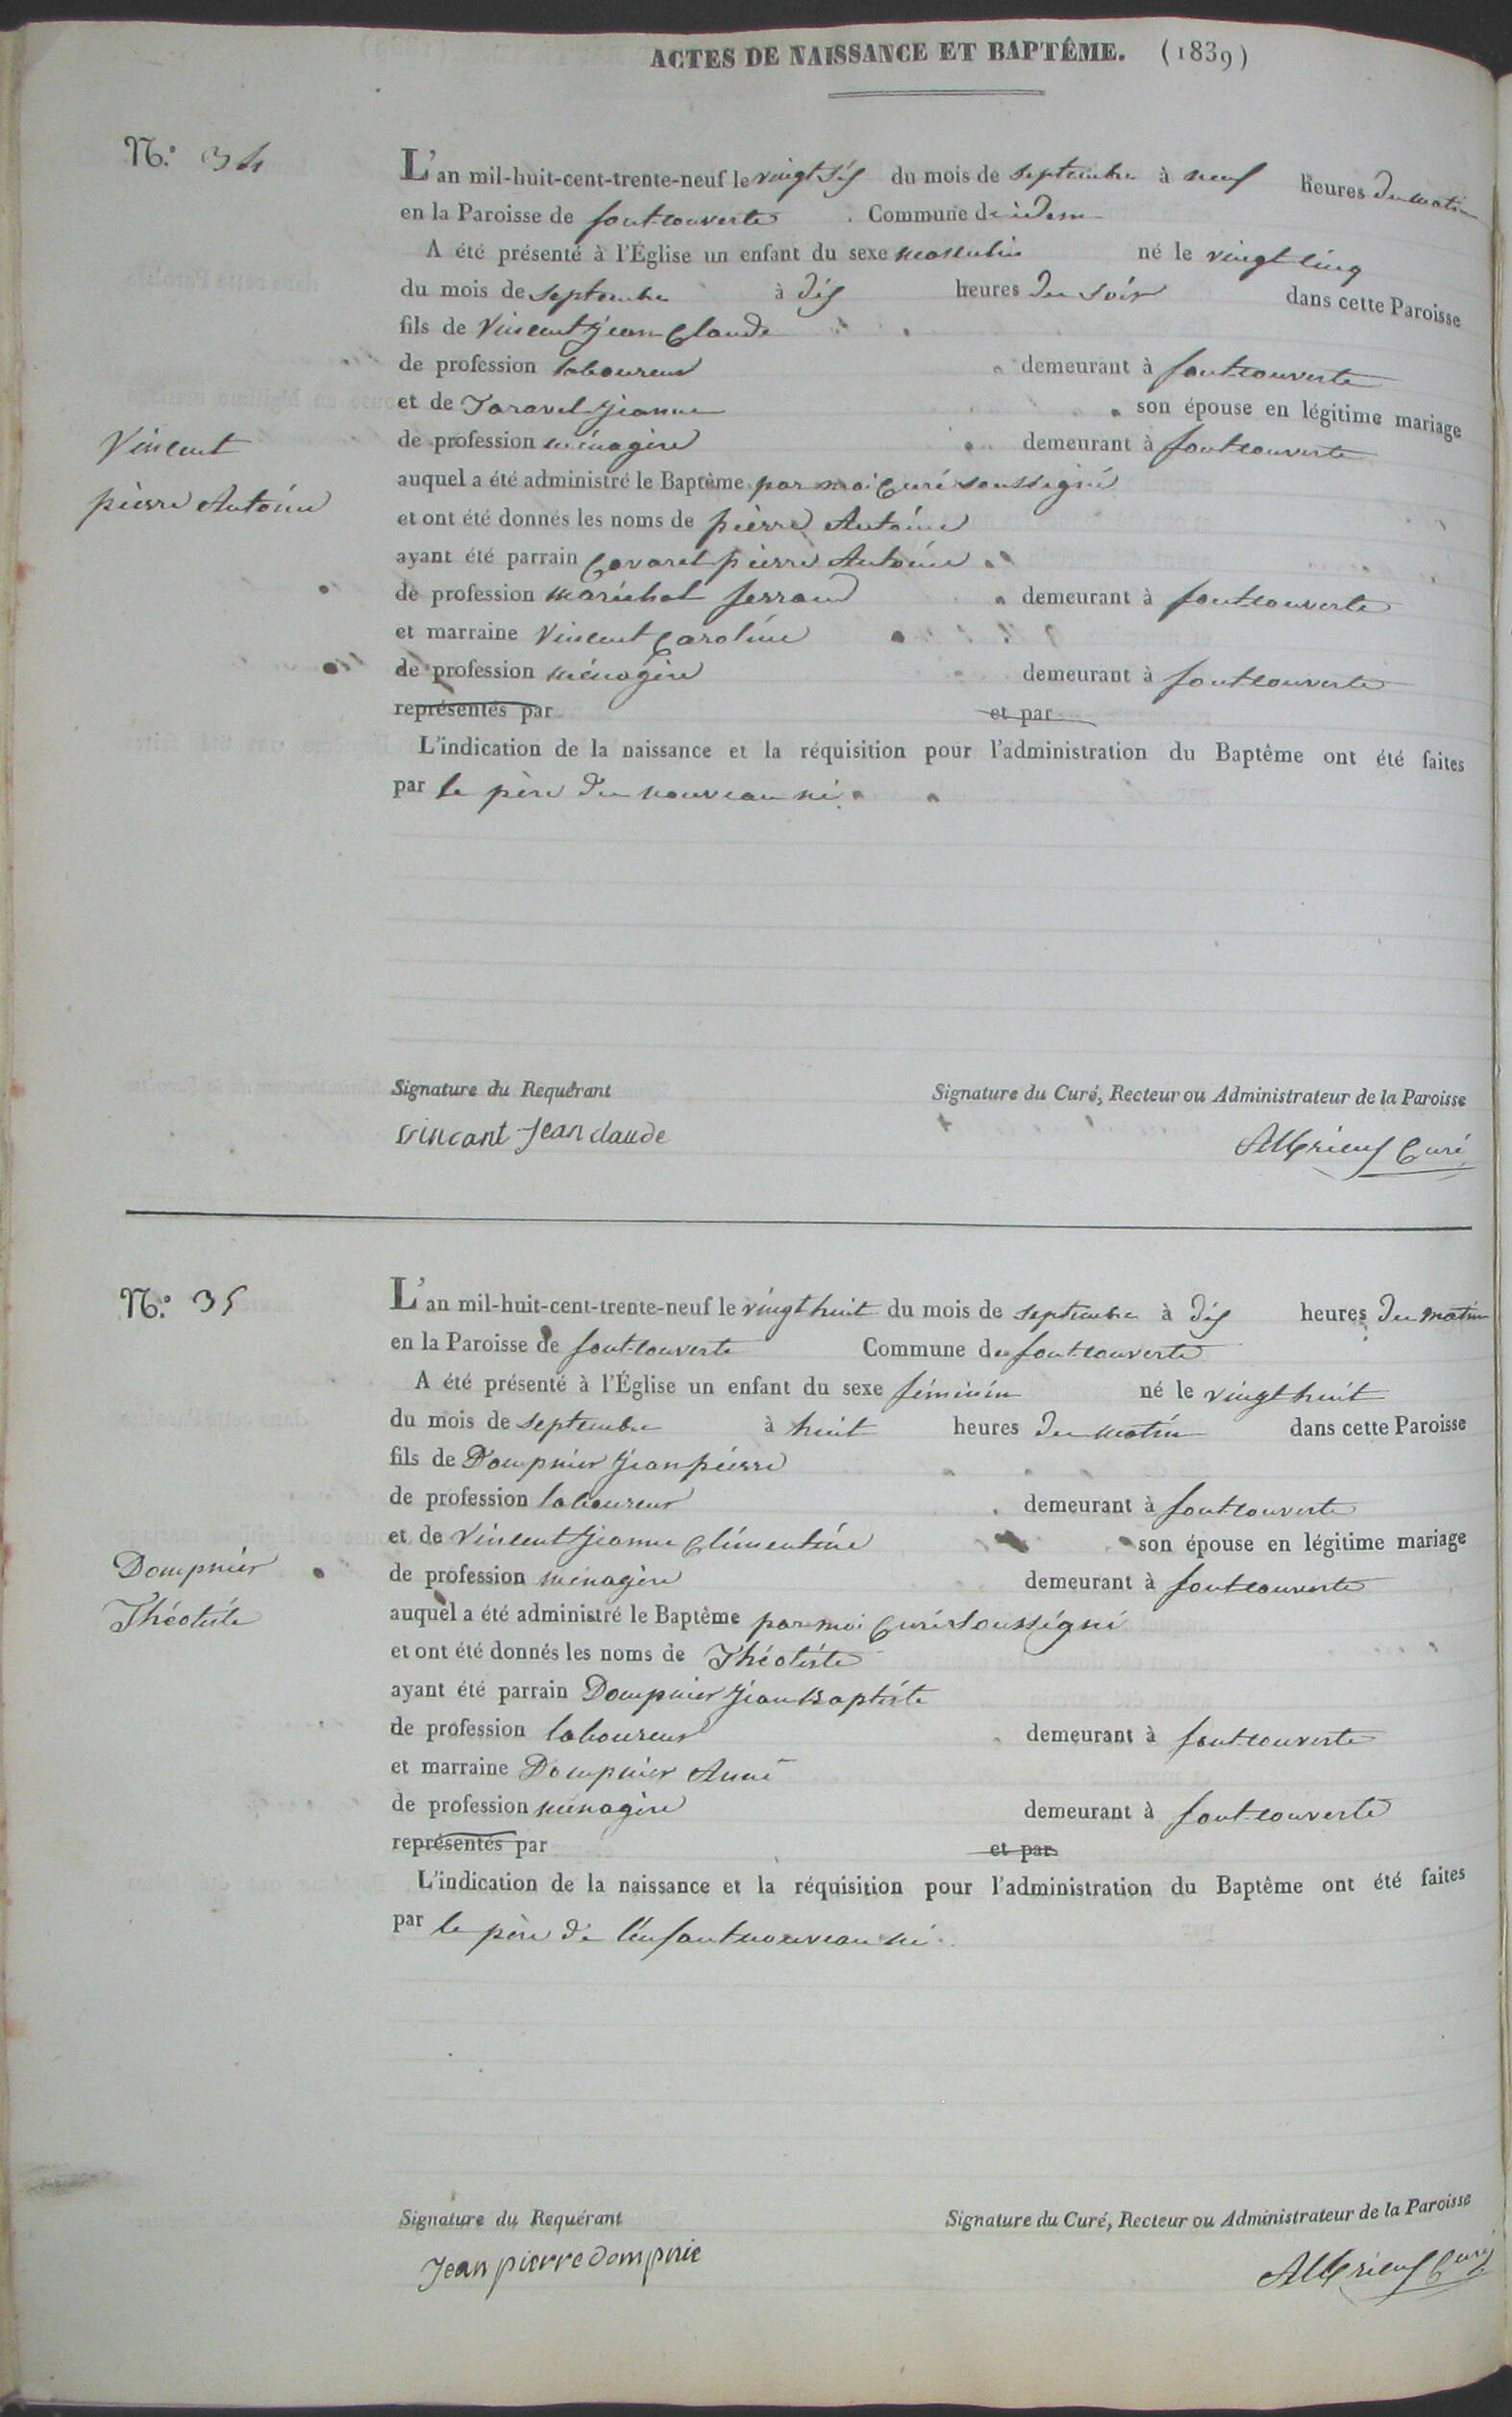 ACTES DE NAISSANCE ET BAPTÊME. (1839)
N.º 34
L'an mil-huit-cent-trente-neuf le vingt six du mois de septembre à neuf heures du matin
en la Paroisse de fontcouverte Commune de idem
A été présenté à l'Église un enfant du sexe masculin né le vingt cinq
du mois de septembre à dix heures du soir dans cette Paroisse
fils de Vincent Jean Claude
de profession laboureur demeurant à fontcouverte
et de Taravel Jeanne son épouse en légitime mariage
Vincent
de profession ménagère demeurant à fontcouverte
auquel a été administré le Baptême par moi Curé soussigné
pierre Antoine
et ont été donnés les noms de pierre Antoine
ayant été parrain Covarel pierre Antoine
de profession maréchal ferrand demeurant à fontcouverte
et marraine Vincent Caroline
de profession ménagère demeurant à fontcouverte
représentés par et par
L'indication de la naissance et la réquisition pour l'administration du Baptême ont été faites
par le père du nouveau né
Signature du Requérant Signature du Curé, Recteur ou Administrateur de la Paroisse
vincant jean claude Curé
N.º 35
L'an mil-huit-cent-trente-neuf le vingt huit du mois de septembre à dix heures du matin
en la Paroisse de fontcouverte Commune de fontcouverte
A été présenté à l'Église un enfant du sexe féminin né le vingt huit
du mois de septembre à huit heures du matin dans cette Paroisse
fils de Dompnier Jean pierre
de profession laboureur demeurant à fontcouverte
et de Vincent Jeanne Clémentine son épouse en légitime mariage
Dompnier
de profession ménagère demeurant à fontcouverte
Théotiste
auquel a été administré le Baptême par moi Curé soussigné
et ont été donnés les noms de Théotiste
ayant été parrain Dompnier Jean Baptiste
de profession laboureur demeurant à fontcouverte
et marraine Dompnier Anne
de profession ménagère demeurant à fontcouverte
représentés par et par
L'indication de la naissance et la réquisition pour l'administration du Baptême ont été faites
par le père de l'enfant nouveau né
Signature du Requérant Signature du Curé, Recteur ou Administrateur de la Paroisse
Jean pierre dompnie Curé